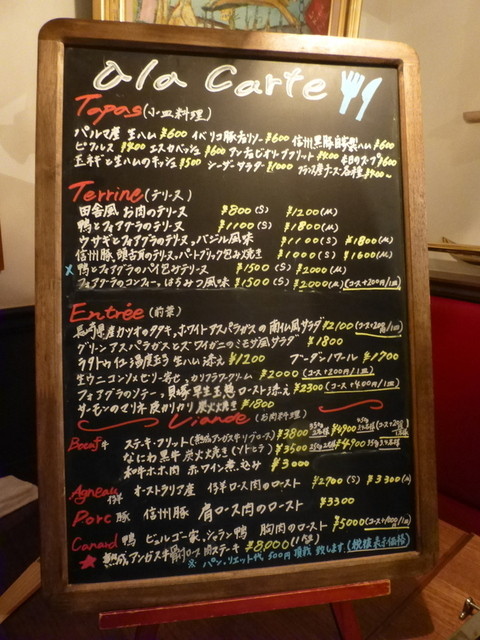 ala Carte
Tapas (小皿料理)
パルマ産 生ハム ¥600 イベリコ豚チョリソー ¥600 信州黒豚自家製ハム ¥600
ピクルス ¥400 エスカベッシュ ¥600 アンチョビオリーブフリット ¥400 本日のスープ ¥600
玉ネギと生ハムのキッシュ ¥500 シーザーサラダ ¥1000 フランス産チーズ各種 ¥400〜
Terrine (テリーヌ)
田舎風 お肉のテリーヌ ¥800 (S) ¥1200 (M)
鴨とフォアグラのテリーヌ ¥1100 (S) ¥1800 (M)
ウサギとフォアグラのテリーヌ、バジル風味 ¥1100 (S) ¥1800 (M)
信州豚、頭舌耳のテリーヌ、パートブリック包み焼き ¥1000 (S) ¥1600 (M)
×鴨とフォアグラのパイ包みテリーヌ ¥1500 (S) ¥2000 (M)
フォアグラのコンフィー、はちみつ風味 ¥1500 (S) ¥2000 (M) (コース+200円/1皿)
Entrée (前菜)
長崎県産カツオのタタキ、ホワイトアスパラガスの南仏風サラダ ¥2100
グリーンアスパラガスとズワイガニのミモザ風サラダ ¥1800
ラタトゥイユ 温度玉子 生ハム添え ¥1200 ブーダンノワール ¥1700
生ウニコンソメゼリー寄せ、カリフラワークリーム ¥2000 (コース+200円/1皿)
フォアグラソテー、ロースト添え ¥2300 (コース+400円/1皿)
サーモンのマリネ 皮カリカリ 炭火焼き ¥1800
Viande (お肉料理)
Boeuf 牛 ステーキ・フリット ¥3800 ¥4900
なにわ黒牛 炭火焼き ¥3500 ¥4900
和牛ホホ肉 赤ワイン煮込み ¥3000
Agneau 仔羊 オーストラリア産 仔羊ロース肉のロースト ¥2900 (S) ¥3300 (M)
Porc 豚 信州豚 肩ロース肉のロースト ¥3300
Canard 鴨 ビュルゴー家、シャラン鴨 胸肉のロースト ¥5000
★ 熟成アンガス牛骨付ロース肉ステーキ ¥8,000
※ パン、リエット代 500円 頂戴致します。(税抜表示価格)